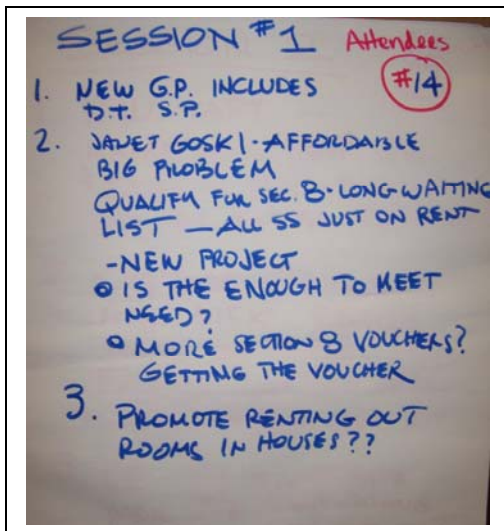 SESSION #1 Attendees
#14
1. NEW G.P. INCLUDES
D.T. S.P.
2. JANET GOSKI - AFFORDABLE
BIG PROBLEM
QUALIFY FUR SEC. 8 - LONG WAITING
LIST — ALL SS JUST ON RENT
- NEW PROJECT
IS THE ENOUGH TO MEET
NEED?
MORE SECTION 8 VOUCHERS?
GETTING THE VOUCHER
3. PROMOTE RENTING OUT
ROOMS IN HOUSES??